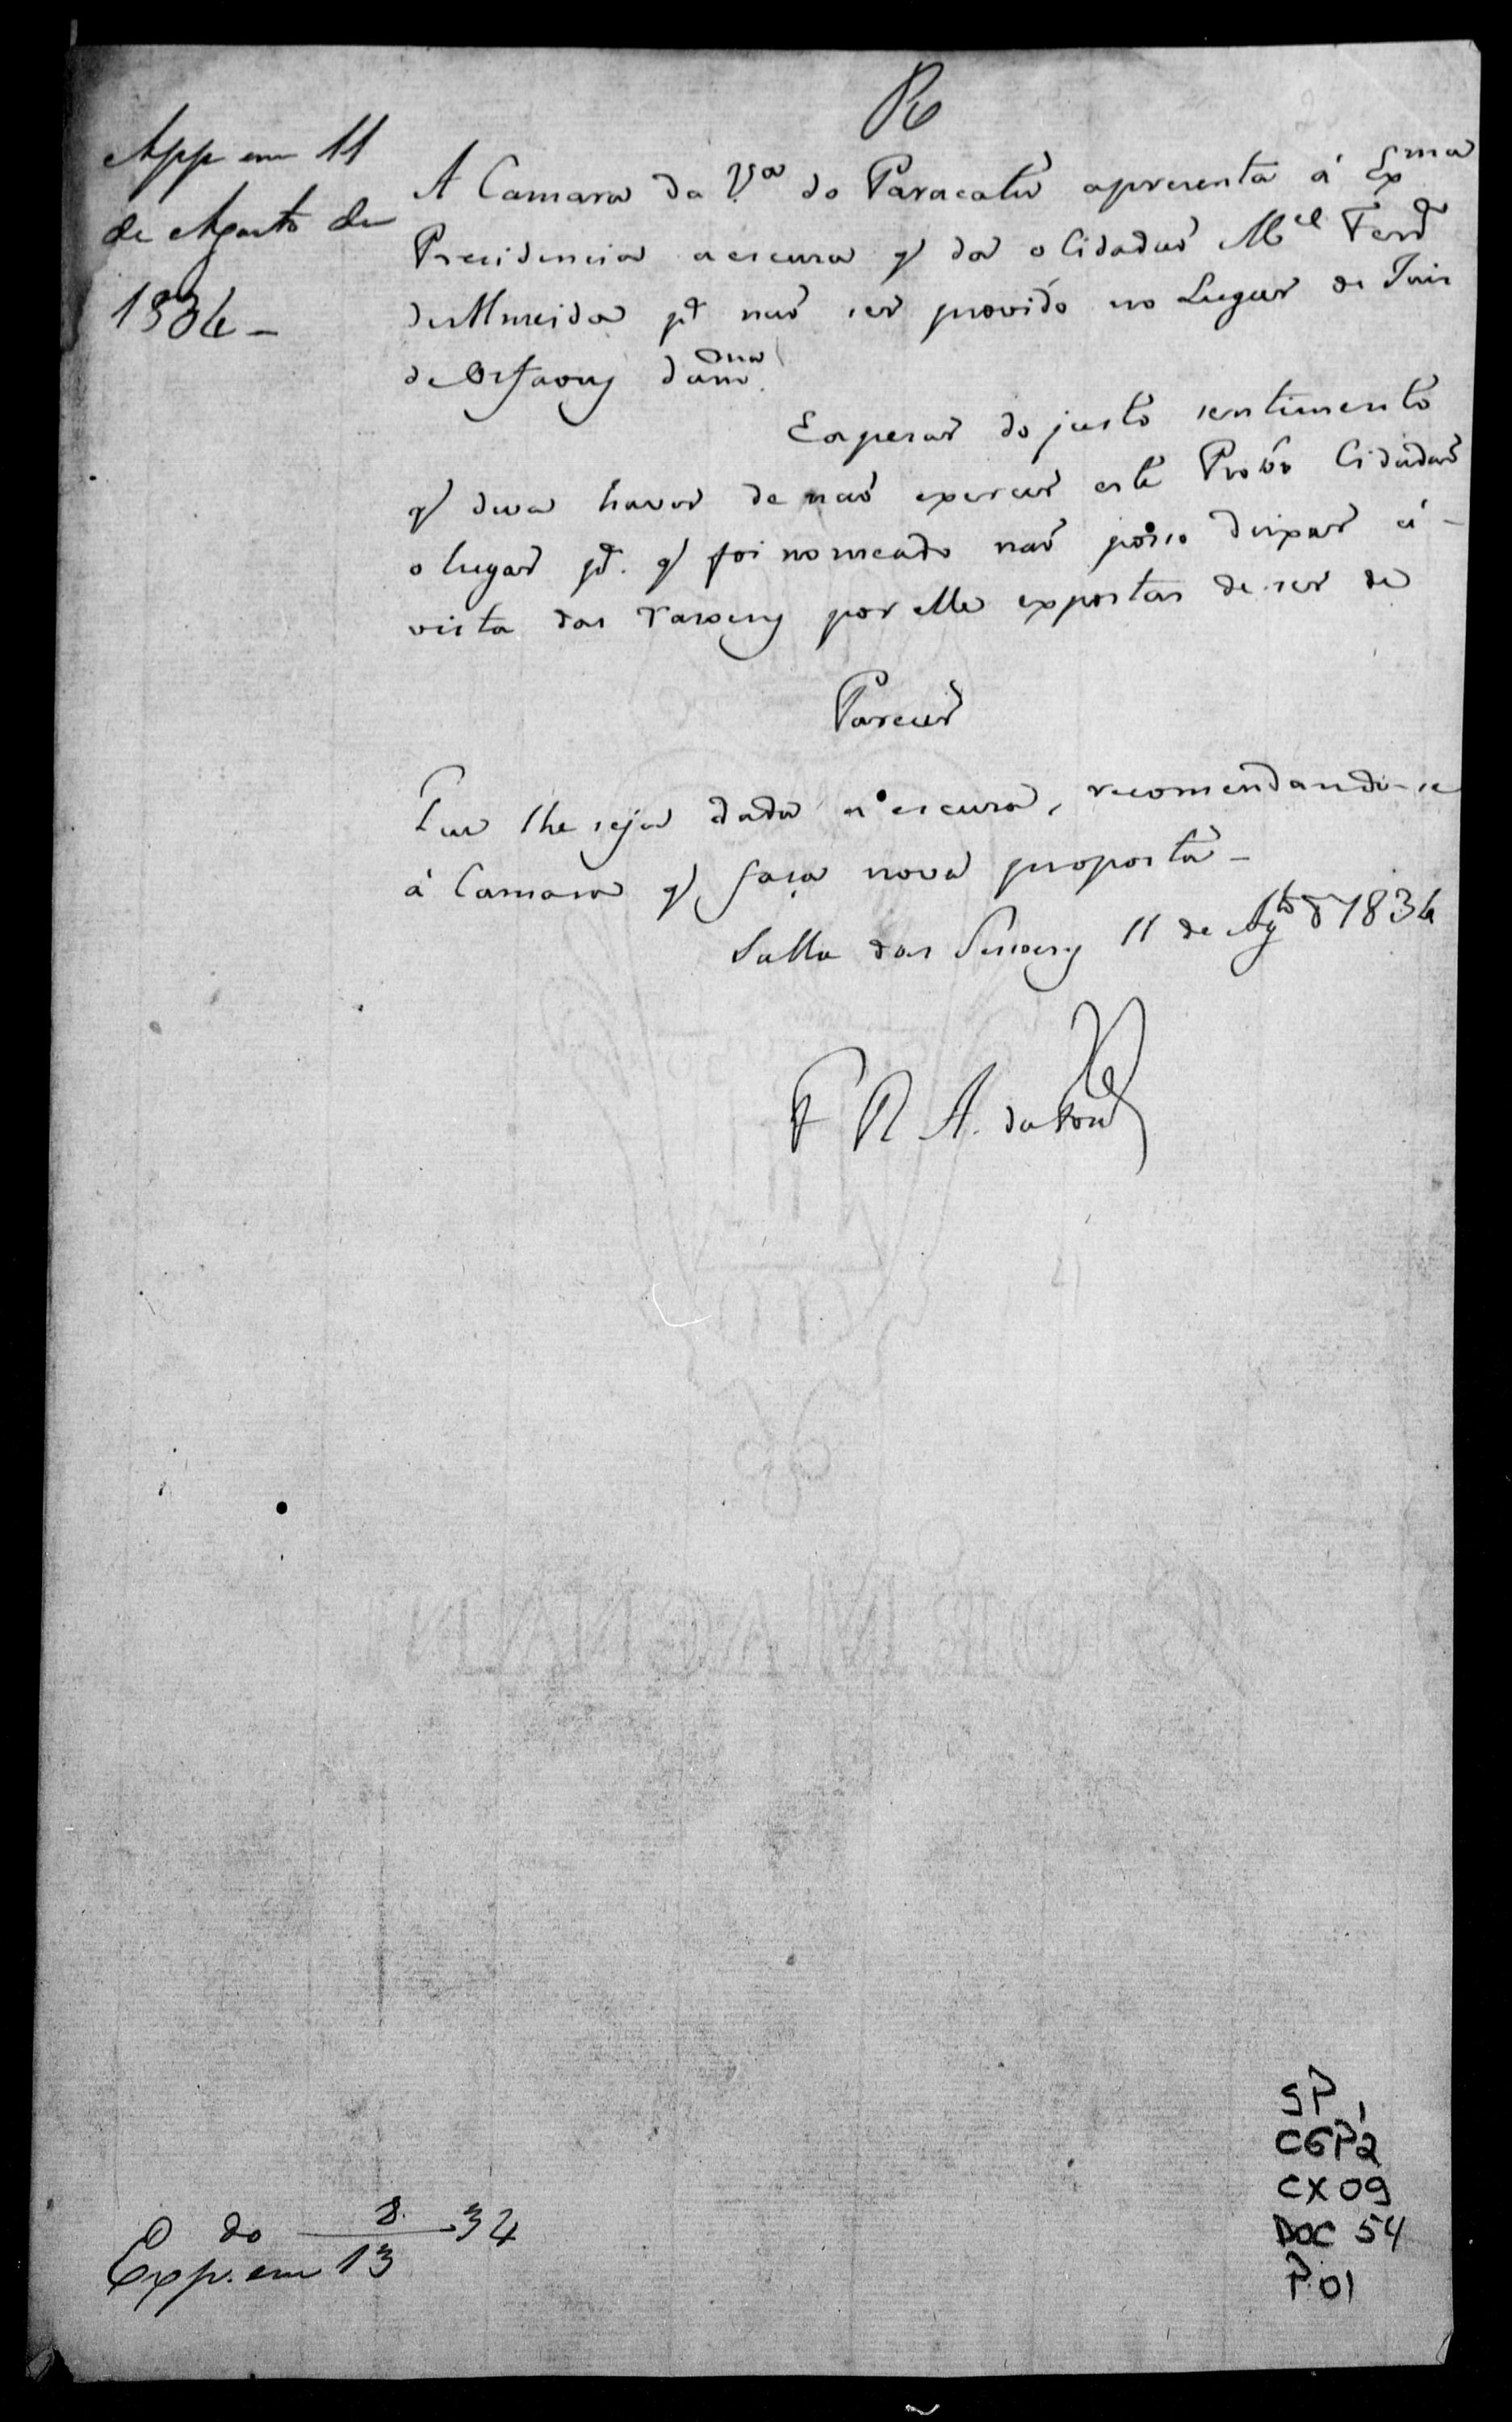 R
App em 11
de Agosto de
1834 -
A Camara da V.ª do Paracatú apresenta á Exma
Presidencia a escuza q da o Cidadaõ Mel Ferd
de Almeida pª naõ ser provido no Lugar de Juis
de Orfaons
E apesar do justo sentimento
q deva haver de naõ exercer este Probo Cidadaõ
o lugar pª. q foi nomeado naõ posso deixar á -
vista das rasoens por elle expostas de ser de
Parecer
Que lhe seja dada a escusa, recomendando-se
á Camara q faça nova proposta -
Salla das Sessoens 11 de Agto d 1834
F R A. da
Expdo em 8/13 34
SP
CGP2
CX 09
DOC 54
P.01